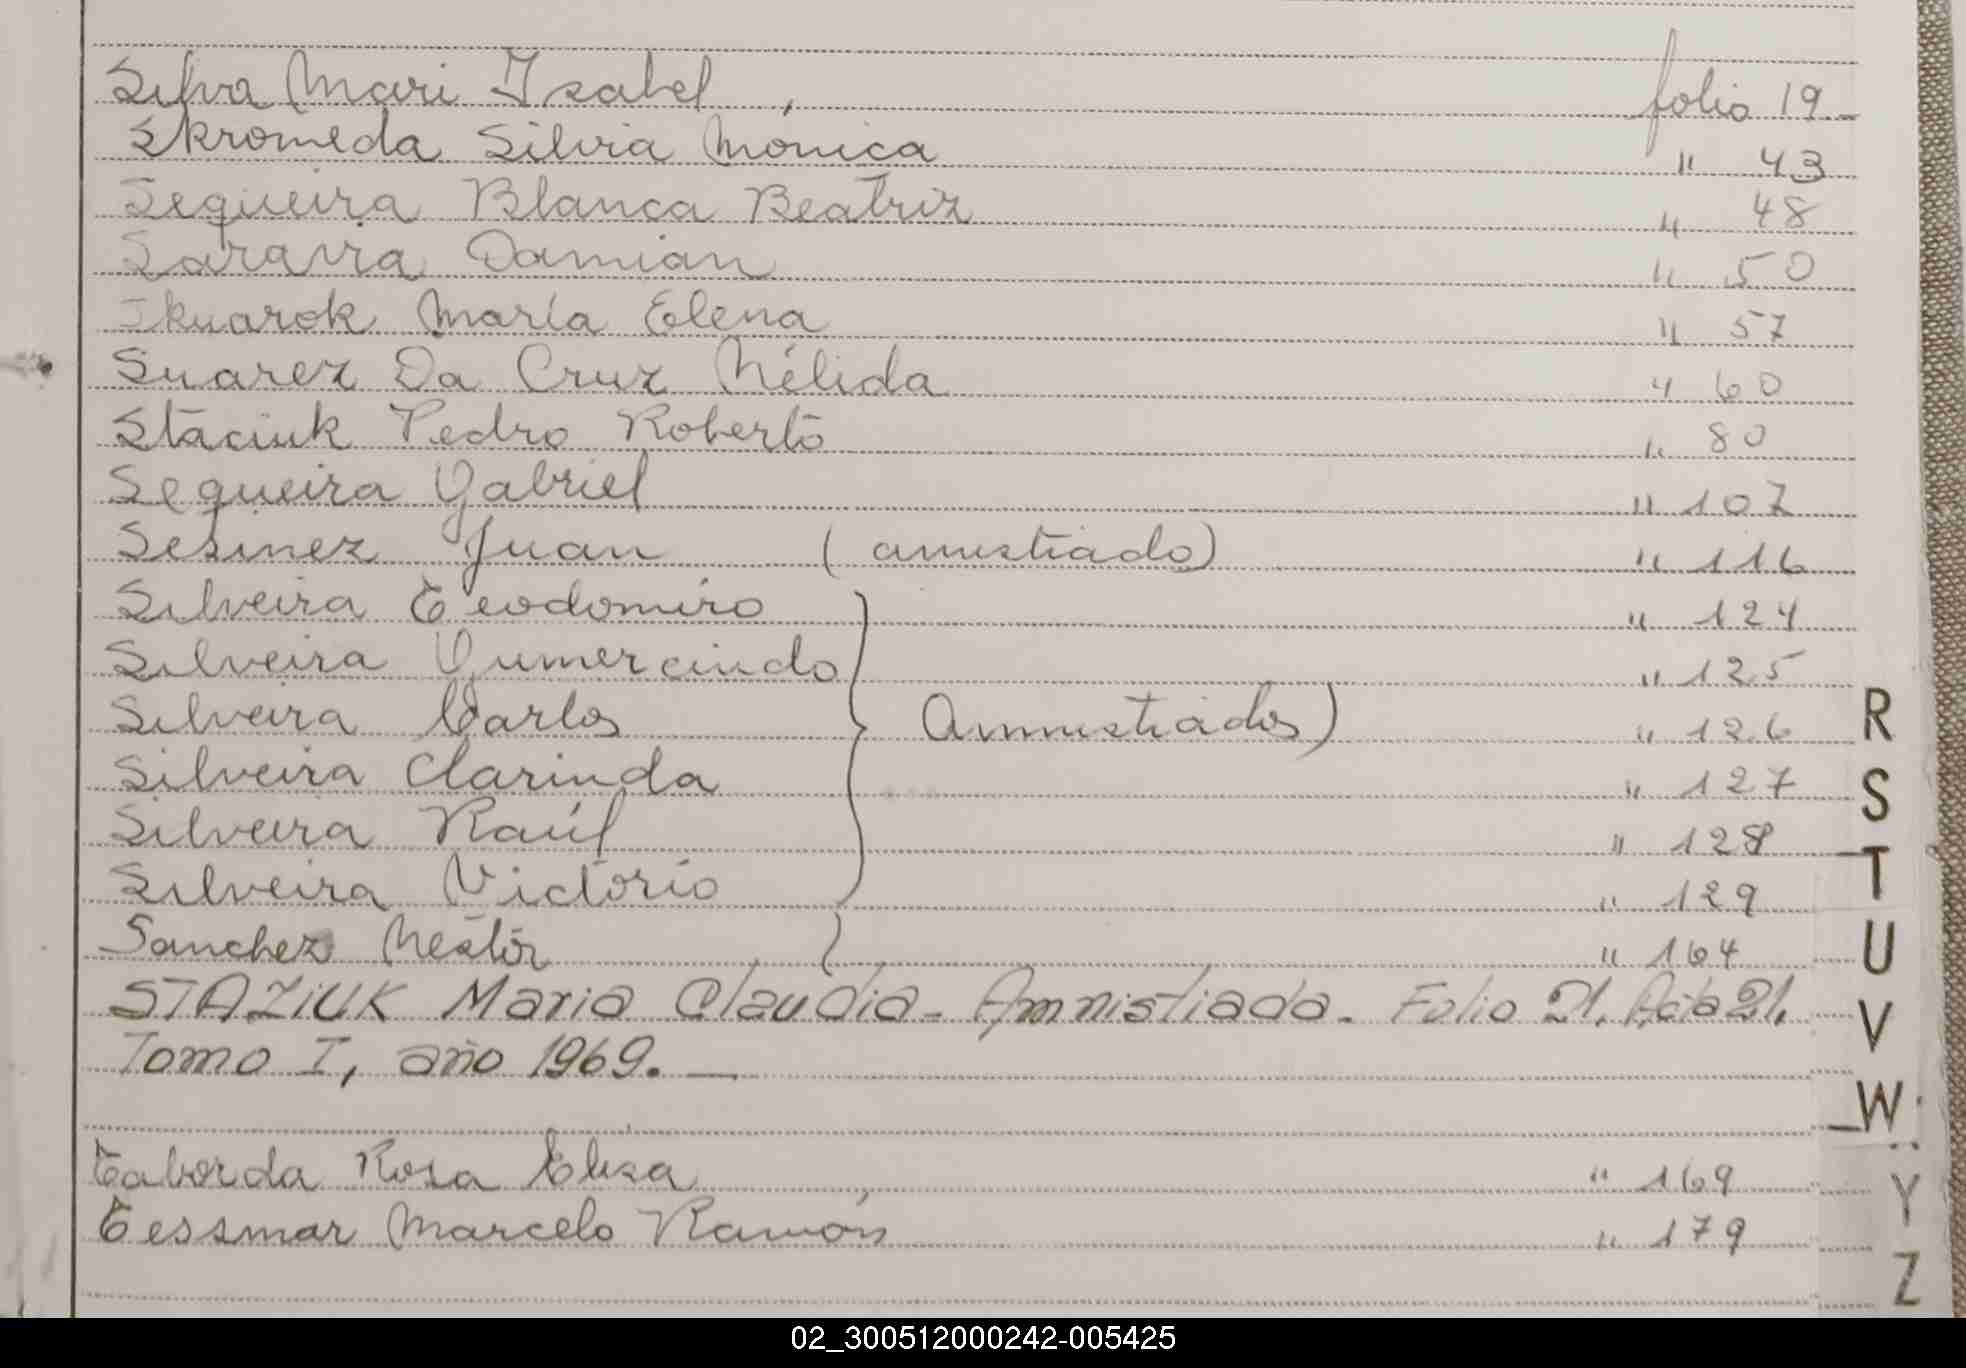 Silva Mari Isabel , folio 19.-
Skromeda Silvia Mónica " 43
Sequeira Blanca Beatriz " 48
Saravia Damian " 50
Skuarok María Elena " 57
Suarez Da Cruz Nélida " 60
Staciuk Pedro Roberto " 80
Sequeira Gabriel " 107
Sesinez Juan (amistiado) " 116
Silveira Teodomiro " 124
Silveira Gumercindo " 125
Silveira Carlos Amnistiados) " 126
Silveira Clarinda " 127
Silveira Raúl " 128
Silveira Victorio " 129
Sanchez Nestor " 164
STAZIUK Maria Claudia - Amnistiada. Folio 21. Acta 21.
Tomo I, año 1969. —
Taborda Rosa Elisa , " 169
Tessmar Marcelo Ramón " 179
R
S
T
U
V
W
Y
Z
02_300512000242-005425